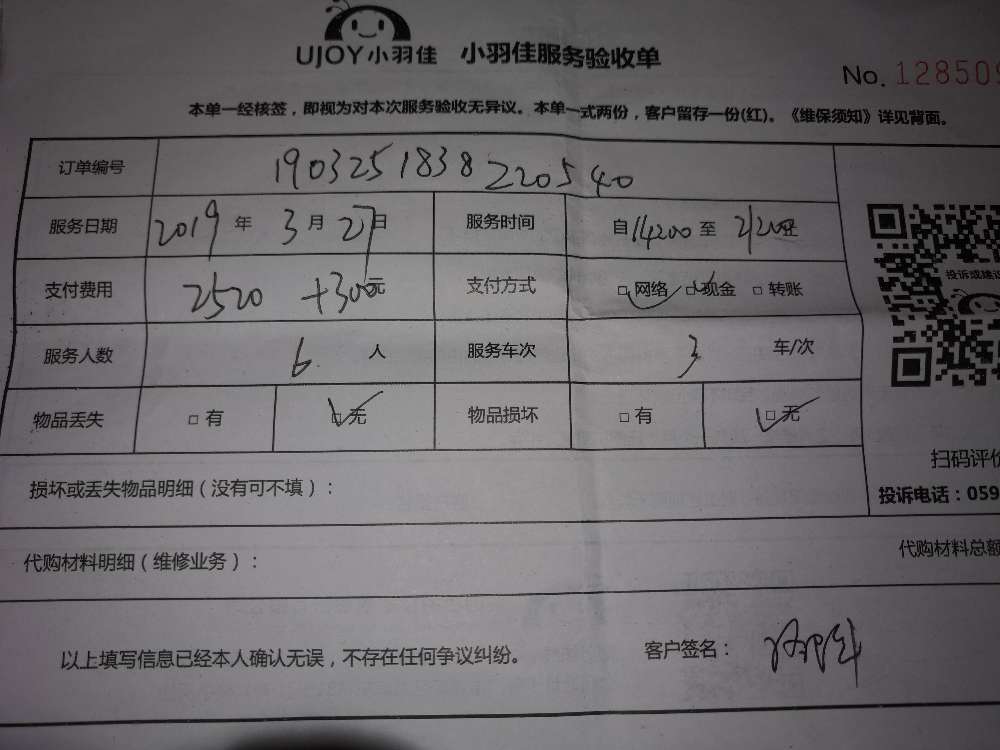 UJOY小羽佳 小羽佳服务验收单
No. 128509
本单一经核签，即视为对本次服务验收无异议。本单一式两份，客户留存一份(红)。《维保须知》详见背面。
订单编号 190325183822054 0
服务日期 2019 年 3 月 27 日 服务时间 自 14:00 至
支付费用 2520 +300元 支付方式 □ 网络 □ 现金 □ 转账
投诉或建议
服务人数 6 人 服务车次 3 车/次
物品丢失 □ 有 □ 无 物品损坏 □ 有 □ 无
扫码评价
损坏或丢失物品明细（没有可不填）：
投诉电话：059
代购材料明细（维修业务）： 代购材料总额
以上填写信息已经本人确认无误，不存在任何争议纠纷。 客户签名：